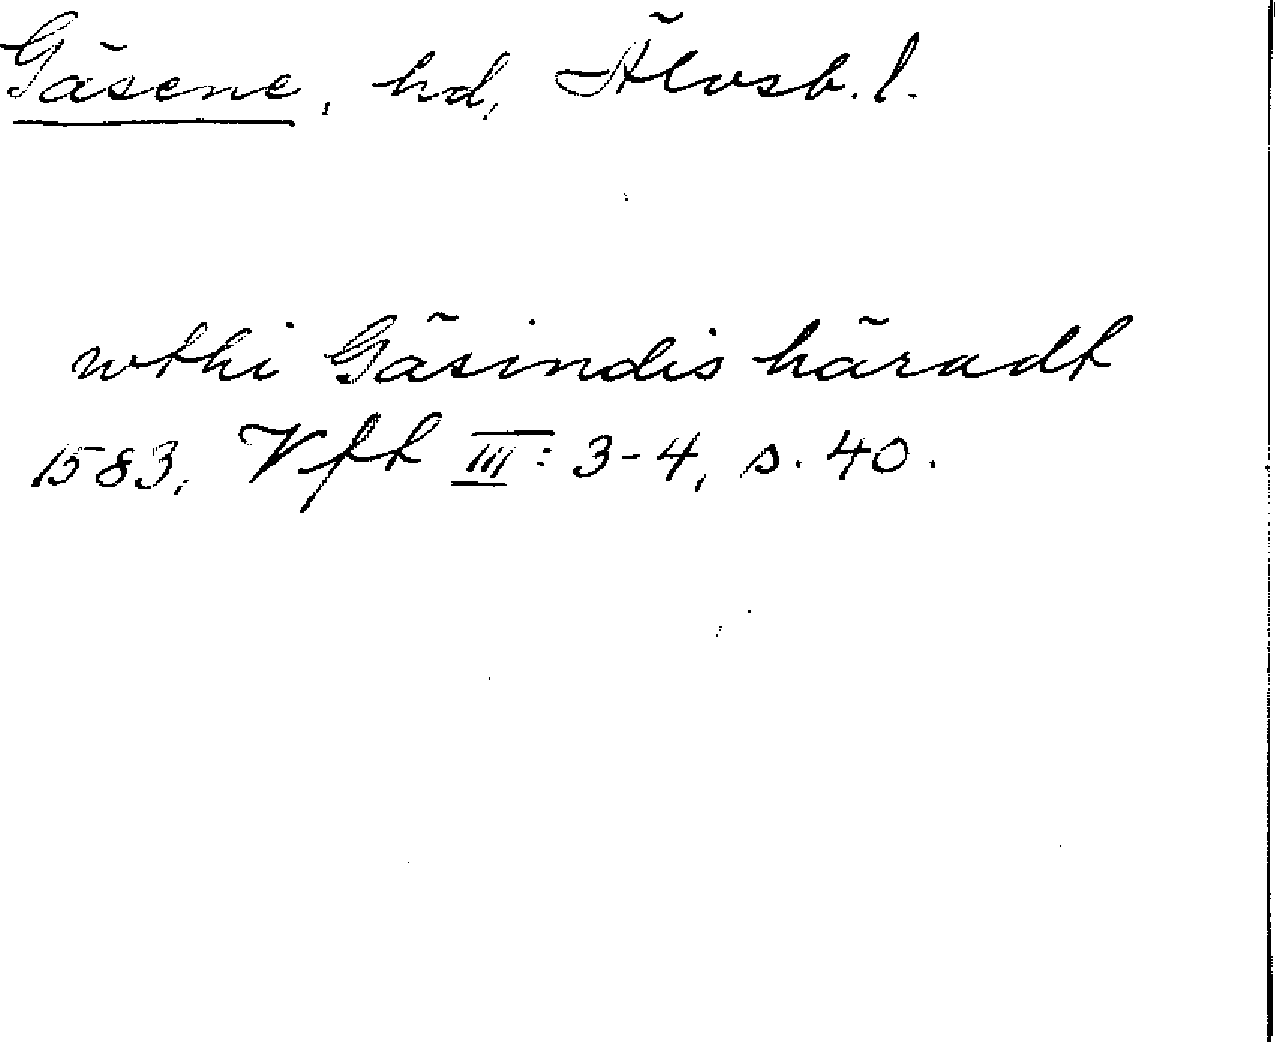 Gäsene, hd, Älvsb. l.
wthi Gäsindis häradt
1583, Vft III: 3-4, s. 40.